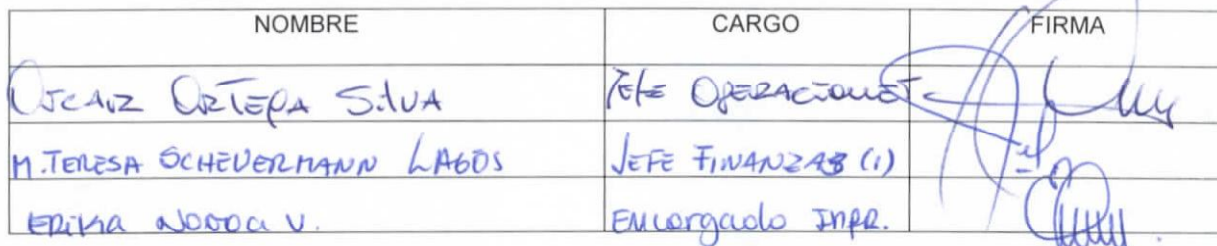 NOMBRE CARGO FIRMA
OSCAR ORTEGA SILVA JEFE OPERACIONES
M. TERESA SCHEUERMANN LAGOS JEFE FINANZAS (I)
ERIKA NOVOA V. Encargado INPR.